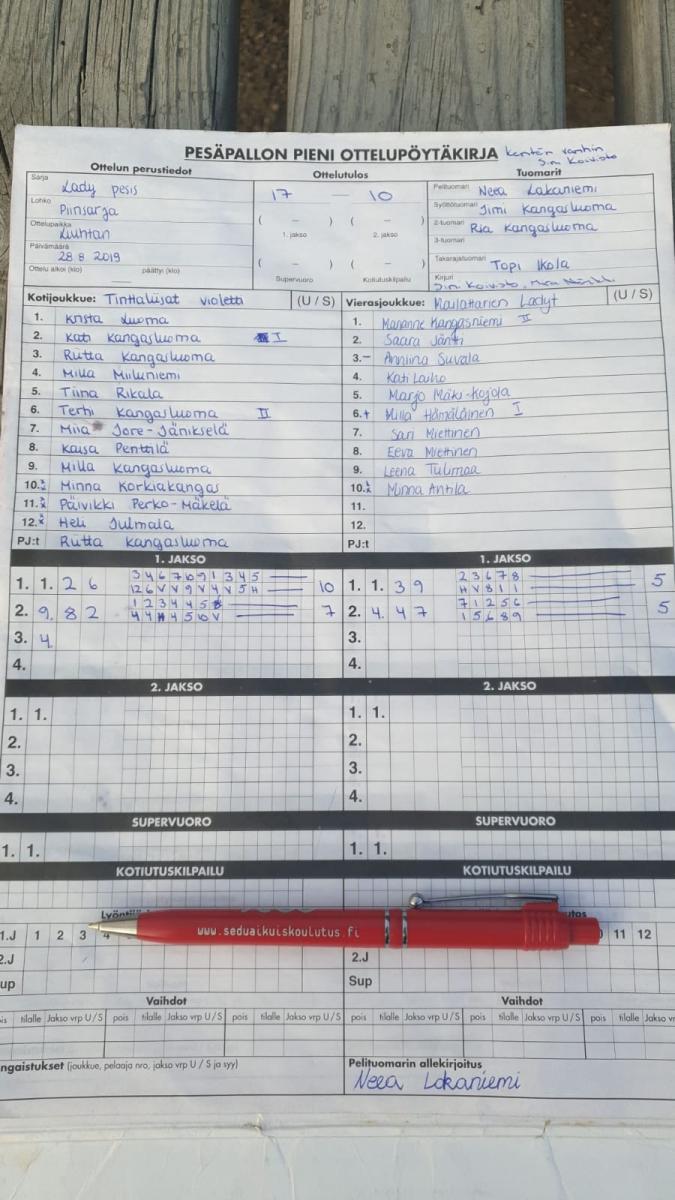 PESÄPALLON PIENI OTTELUPÖYTÄKIRJA
Kentän vanhin
Ottelun perustiedot
Ottelutulos
Tuomarit
Sarja Lady pesis
17 — 10
Pelituomari Neea Lakaniemi
Lohko Piinsarja
Syöttötuomari Jimi Kangasluoma
Ottelupaikka
1. jakso 2. jakso
2-tuomari Ria Kangasluoma
3-tuomari
Päivämäärä 28.8.2019
Takarajatuomari Topi Ikola
Ottelu alkoi (klo) päättyi (klo)
Supervuoro Kotiutuskilpailu
Kirjuri
Kotijoukkue: Tinttaliisat violetti (U / S)
Vierasjoukkue: Ladyt (U / S)
1. Krista Luoma
2. Kati Kangasluoma I
3. Riitta Kangasluoma
4. Milla Miiluniemi
5. Tiina Rikala
6. Terhi Kangasluoma II
7. Miia Jore-Jänikselä
8. Kaisa Penttilä
9. Milla Kangasluoma
10. Minna Korkiakangas
11. Päivikki Perko-Mäkelä
12. Heli Julmala
PJ:t Riitta Kangasluoma
1. Marianne Kangasniemi II
2. Saara Jäntti
3.- Anniina Suvala
4. Kati Laiho
5. Marjo Mäki-Kojola
6.+ Milla Hämäläinen I
7. Sari Miettinen
8. Eeva Miettinen
9. Leena Tulimaa
10. Minna Antila
11.
12.
PJ:t
1. JAKSO
1. 1. 2 6
3 4 6 7 10 9 1 3 4 5
12 6 V V 9 V 4 V 5 H
10
2. 9. 8 2
1 2 3 4 4 5
4 4 H 4 5 10 V
7
3. 4.
4.
1. JAKSO
1. 1. 3 9
2 3 6 7 8
H V 8 1 1
5
2. 4. 4 7
7 1 2 5 6
1 5 6 8 9
5
3.
4.
2. JAKSO
1. 1.
2.
3.
4.
2. JAKSO
1. 1.
2.
3.
4.
SUPERVUORO
1. 1.
SUPERVUORO
1. 1.
KOTIUTUSKILPAILU
KOTIUTUSKILPAILU
www.seduaikuiskoulutus.fi
1.J 1 2 3 4
11 12
2.J
2.J
Sup
Vaihdot
Vaihdot
tilalle Jakso vrp U/S pois tilalle Jakso vrp U/S pois tilalle Jakso vrp U/S
pois tilalle Jakso vrp U/S pois tilalle Jakso vrp U/S pois tilalle Jakso
ngaistukset (joukkue, pelaaja nro, jakso vrp U / S ja syy)
Pelituomarin allekirjoitus
Neea Lakaniemi